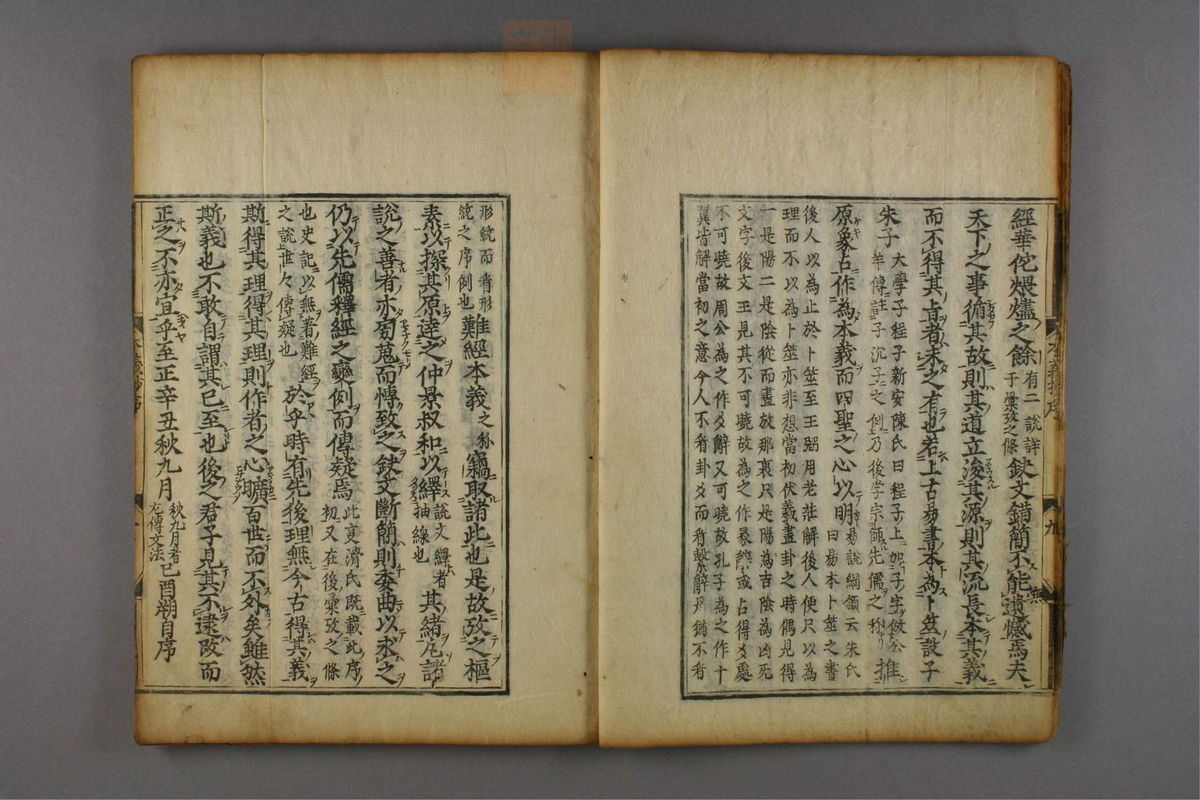 經華佗煨爐之餘有二說詳于彙攷之條缺文錯簡不能無遺憾焉夫
天下之事循其故則其道立浚其源則其流長本其義
而不得其旨者未之有也若上古易書本為卜筮設子
朱子大學子程子新安陳氏曰程子上加子字倣公羊傳註子沉子之例乃後学宗師先儒之称推
原象占作為本義而四聖之心以明易說綱領云朱氏曰易本卜筮之書
後人以為止於卜筮至王弼用老莊解後人便只以為
理而不以為卜筮亦非想當初伏羲畫卦之時偶見得
一是陽二是陰從而畫放那裏只是陽為吉陰為凶死
文字後文王見其不可曉故為之作彖辭或占得爻處
不可曉故周公為之作爻辭又可曉故孔子為之作十
翼皆解當初之意今人不看卦爻而看繫辭是猶不看
形統而看形統之序例也難經本義之称竊取諸此也是故攷之樞
素以探其原達之仲景叔和以繹說文繹者抽線也其緒凢諸
說之善者亦旁蒐而愽致之缺文斷簡則委曲以求之
仍以先儒釋經之變例而傳疑焉此亰濟氏既載此序初又在後彙攷之條
也史記以無著難經之說世々傳疑也於乎時有先後理無今古得其義
斯得其理得其理則作者之心曠百世而不外矣雖然
斯義也不敢自謂其已至也後之君子見其不逮改而
正之不亦宜乎至正辛丑秋九月秋九月者左傳文法己酉朔自序